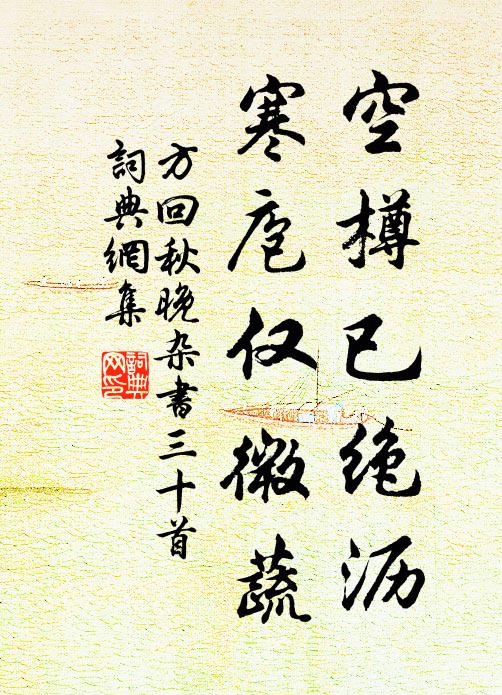 空樽已绝沥
寒庖仅微蔬
方回秋晚杂书三十首
詞典網集
詞典网印